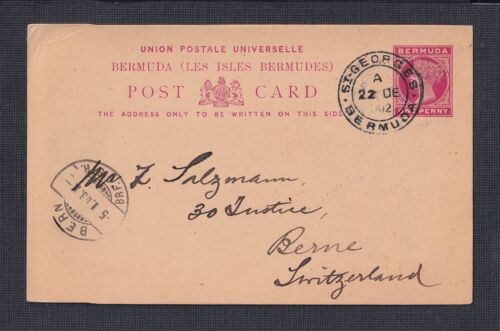 UNION POSTALE UNIVERSELLE
BERMUDA (LES ISLES BERMUDES)
POST CARD
THE ADDRESS ONLY TO BE WRITTEN ON THIS SIDE
BERMUDA
PENNY
ST. GEORGES
A
22 DE
BERMUDA
BERN
F. Salzmann,
30 Justice,
Berne
Switzerland